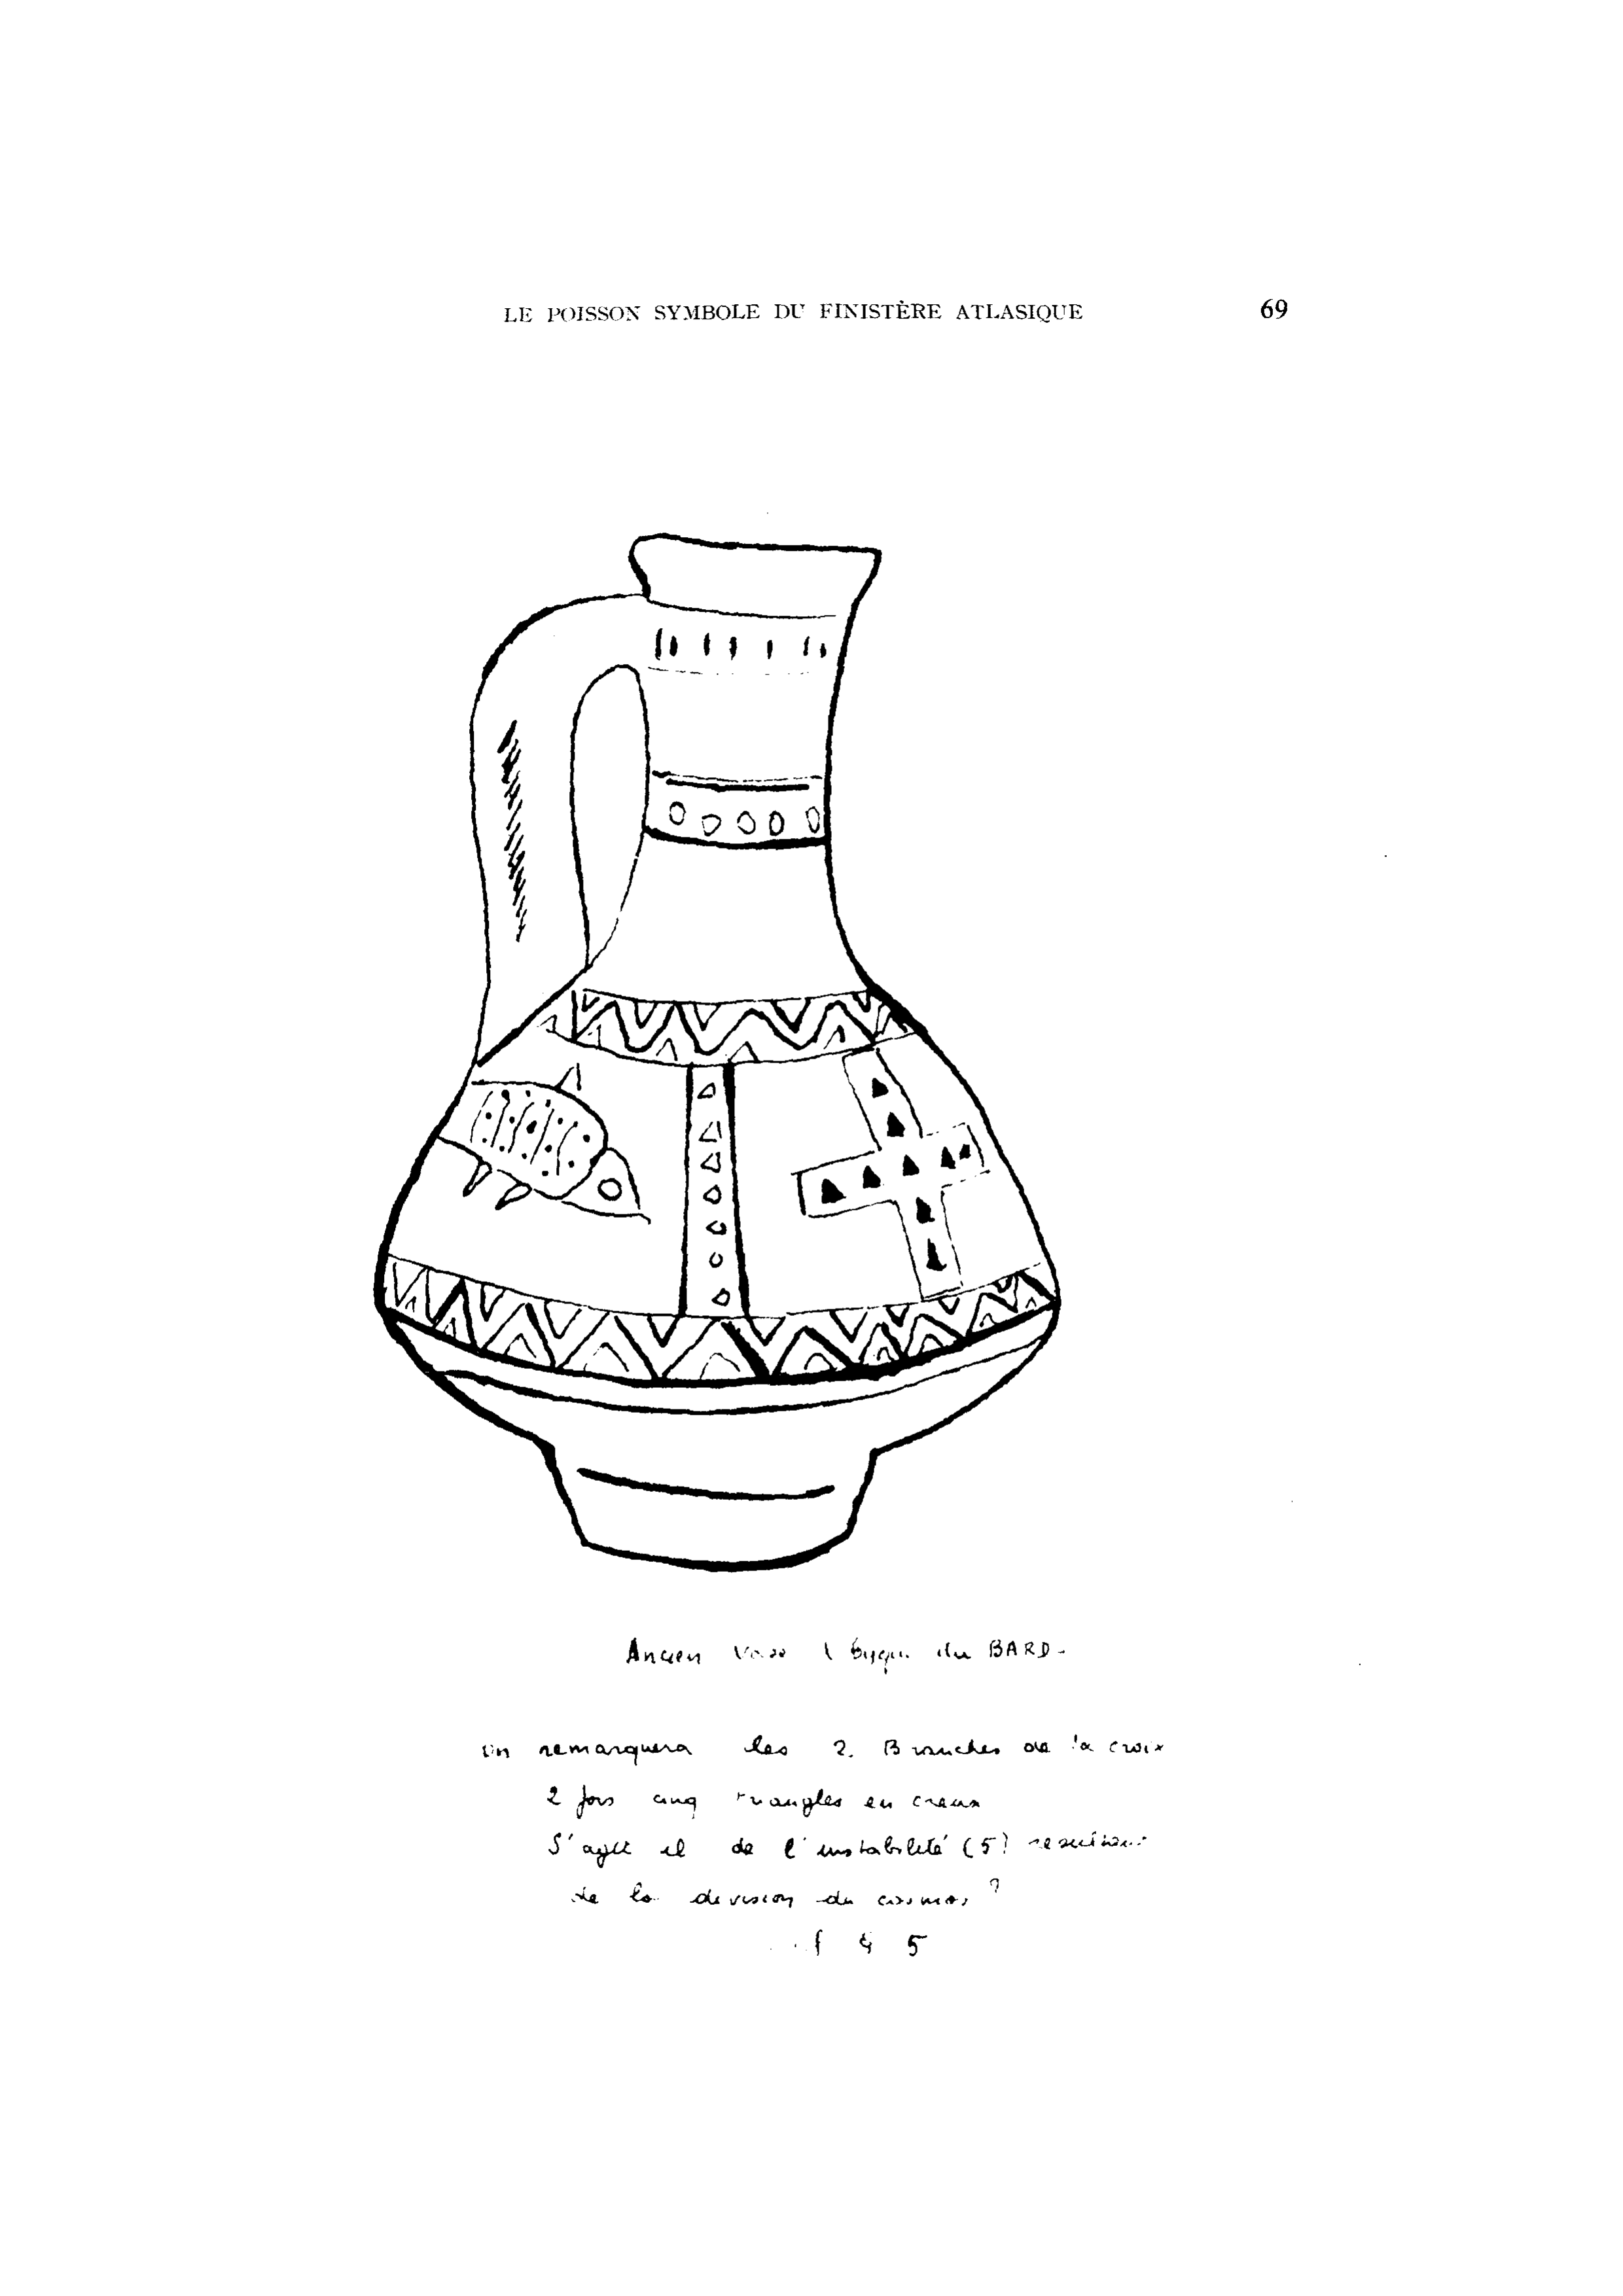 LE POISSON SYMBOLE DU FINISTÈRE ATLASIQUE 69
Ancien du BARD-
on remarquera les 2. Branches de la croix
2 fois cinq triangles en creux
S'agit il de l'instabilité (5)
de la division du cosmos ?
5